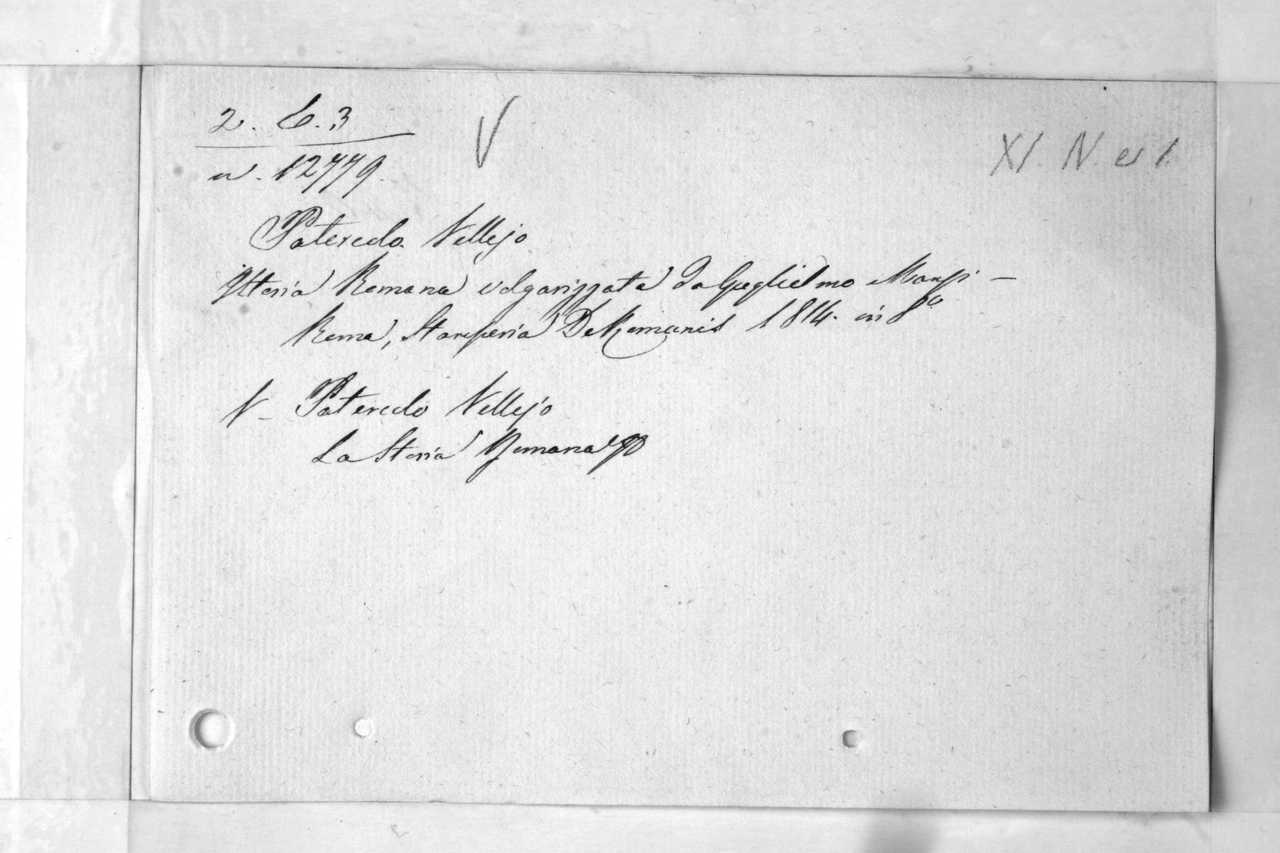 2. C. 3
V
XI. IV. es 1.
n. 12779.
Patercolo Vellejo
Istoria Romana volgarizzata da Guglielmo Manzi —
Roma, Stamperia De Romanis 1814. in 8º
V- Patercolo Vellejo
La Storia Romana